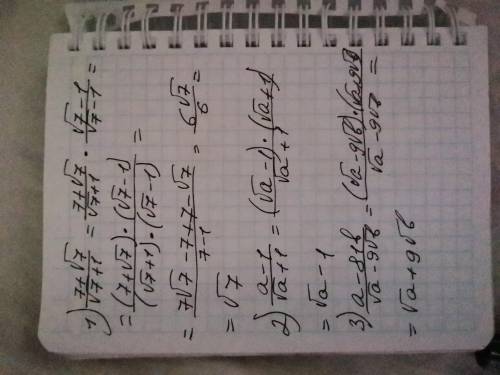 1) (7+√7)/(√7+1) = (7+√7)/(√7+1) · (√7-1)/(√7-1) =
= ((7+√7)·(√7-1))/((√7+1)·(√7-1)) =
= (7√7-7+7-√7)/(7-1) = 6√7/6 =
= √7
2) (a-1)/(√a+1) = ((√a-1)·(√a+1))/(√a+1)
= √a-1
3) (a-81b)/(√a-9√b) = ((√a-9√b)·(√a+9√b))/(√a-9√b) =
= √a+9√b